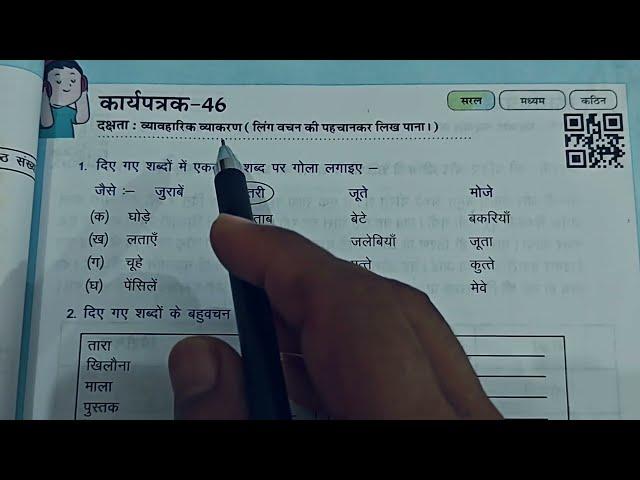 कार्यपत्रक-46
सरल मध्यम कठिन
दक्षता : व्यावहारिक व्याकरण ( लिंग वचन की पहचानकर लिख पाना। )
1. दिए गए शब्दों में शब्द पर गोला लगाइए –
जैसे :– जुराबें जूते मोजे
(क) घोड़े बेटे बकरियाँ
(ख) लताएँ जलेबियाँ जूता
(ग) चूहे कुत्ते
(घ) पेंसिलें मेवे
2. दिए गए शब्दों के बहुवचन
तारा
खिलौना
माला
पुस्तक